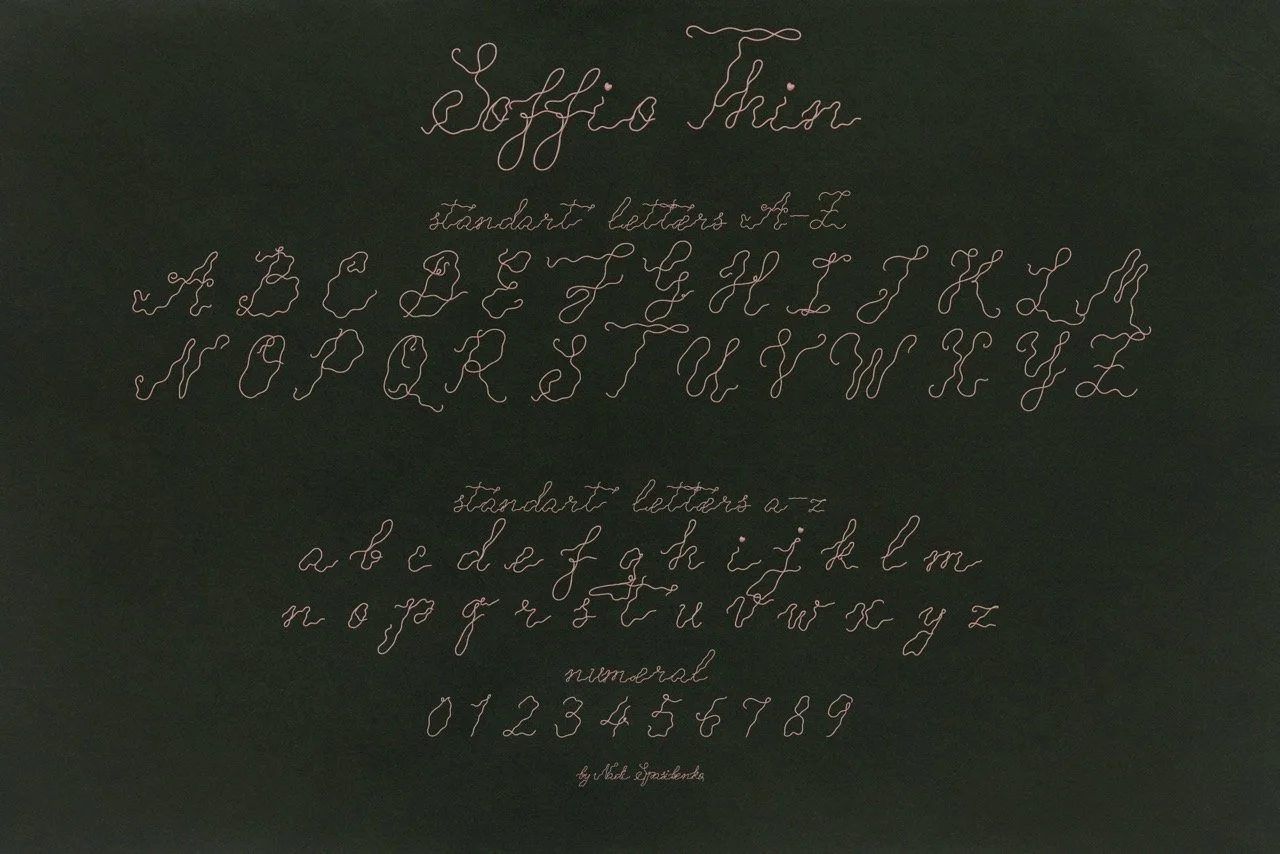 Soffio Thin
standart letters A-Z
A B C D E F G H I J K L M
N O P Q R S T U V W X Y Z
standart letters a-z
a b c d e f g h i j k l m
n o p q r s t u v w x y z
numeral
0 1 2 3 4 5 6 7 8 9
by